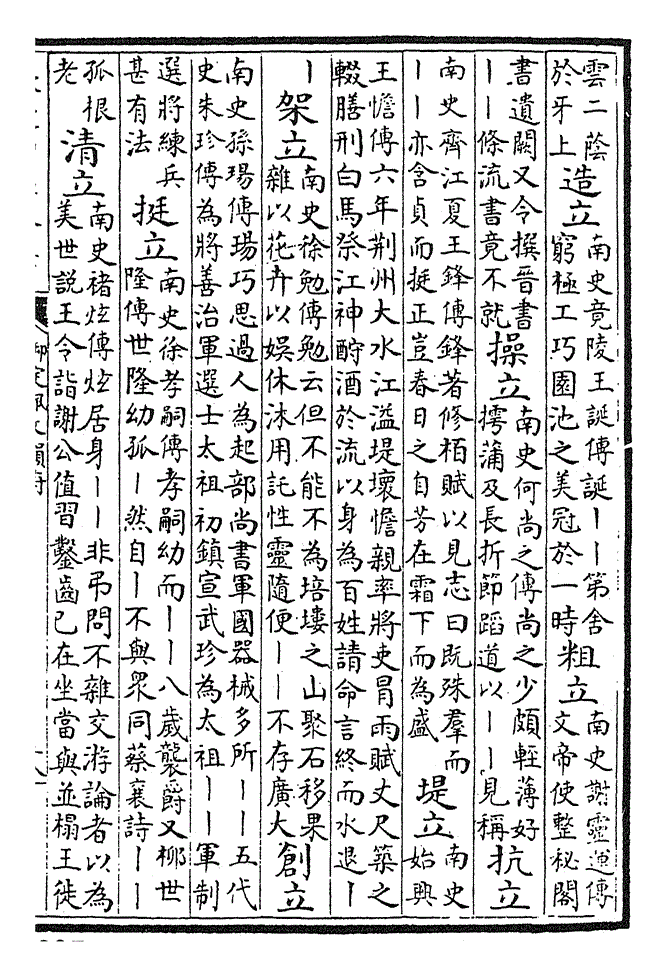 雲二蔭於牙上造立南史竟陵王誕傳誕――第舍窮極工巧園池之美冠於一時粗立南史謝靈運傳文帝使整秘閣
書遺闕又令撰晉書――條流書竟不就操立南史何尚之傳尚之少頗輕薄好摴蒲及長折節蹈道以――見稱抗立
南史齊江夏王鋒傳鋒著修栢賦以見志曰既殊羣而――亦含貞而挺正豈春日之自芳在霜下而為盛堤立南史始興
王憺傳六年荆州大水江溢堤壞憺親率將吏冒雨賦丈尺築之輟膳刑白馬祭江神酹酒於流以身為百姓請命言終而水退―
―架立南史徐勉傳勉云但不能不為培塿之山聚石移果雜以花卉以娛休沐用託性靈隨便――不存廣大創立
南史孫瑒傳瑒巧思過人為起部尚書軍國器械多所――五代史朱珍傳為將善治軍選士太祖初鎮宣武珍為太祖――軍制
選將練兵甚有法挺立南史徐孝嗣傳孝嗣幼而――八歲襲爵又柳世隆傳世隆幼孤―然自―不與衆同蔡襄詩――
孤根老清立南史禇炫傳炫居身――非弔問不雜交游論者以為美世説王令詣謝公值習鑿齒已在坐當與並榻王徙